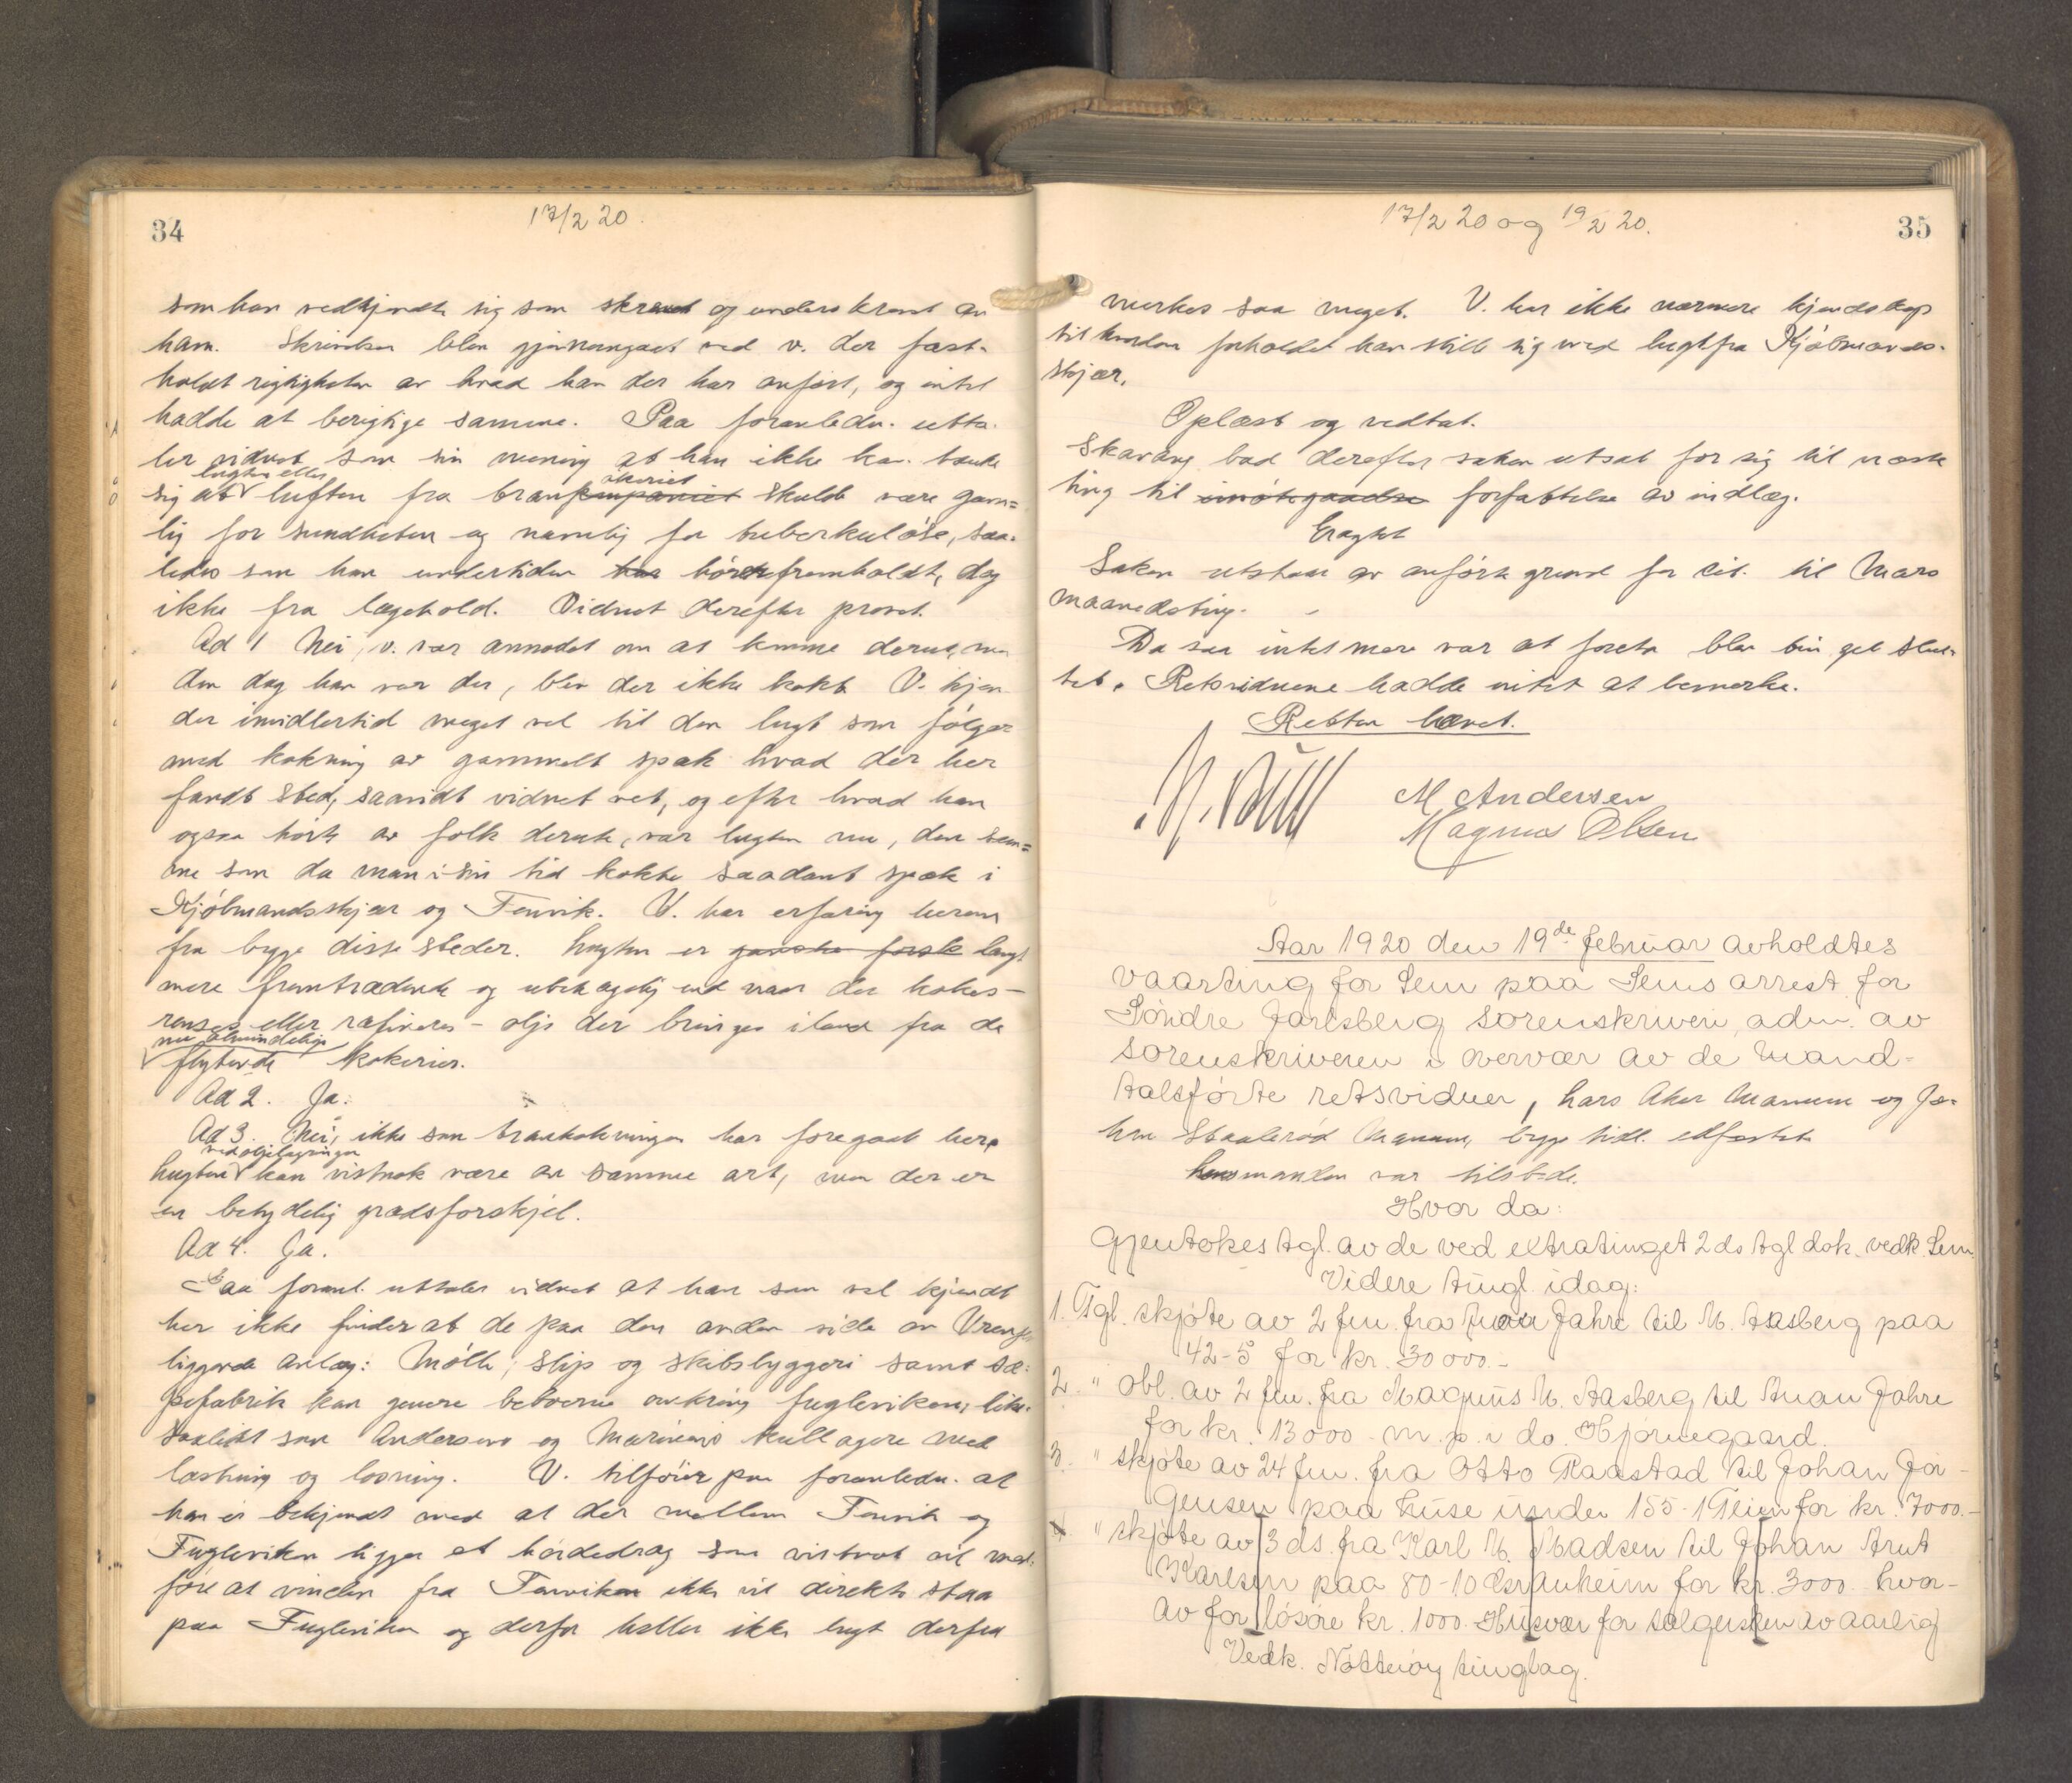 34
17/2 20.
som han vedkjendte sig som skrevet og underskrevet av
ham. Skrivelsen blev gjennemgaaet med v. der fast-
holdt rigtigheten av hvad han der har anført, og intet
hadde at berigtige samme. Paa foranledn. utta-
ler vidnet som sin mening at han ikke kan tænke
lugten eller
okeriet
sig at luften fra trankompaniet skulde være gavn=
lig for sundheten og navnlig for tuberkuløse, saa-
ledes som han undertiden har hørt fremholdt, dog
ikke fra lægehold. Vidnet derefter prøvet.
Ad 1 Nei, v. var anmodet om at komme derut, men
den dag han var der, blev der ikke kokt. V. kjen-
der imidlertid meget vel til den lugt som følger
med kokning av gammelt spæk hvad der her
fandt sted, saavidt vidnet vet, og efter hvad han
ogsaa hørte av folk derute, var lugten nu, den sam=
me som da man i sin tid kokte saadant spæk i
Kjøbmandsskjær og Tenvik. V. har erfaring herom
fra begge disse steder. Lugten er ganske forsk langt
mere fremtrædende og ubehagelig end naar der kokes –
renses eller rafineres – olje der bringes iland fra de
nu almindelige
flytende kokerier.
Ad 2. Ja.
Ad 3. Nei, ikke som trankokningen har foregaat her,
ved oljelagringen
lugten kan vistnok være av samme art, men der er
en betydelig gradsforskjel.
Ad 4. Ja.
Paa foranl. uttaler vidnet at han som vel kjendt
her ikke finder at de paa den anden side av Vrengen
liggende anlæg: Mølle, slip og skibsbyggeri samt sæ-
pefabrik kan genere beboerne omkring fugleviken, like-
saalidt som Andersens og Marinens kullagere med
lastning og losning. V. tilføier paa foranledn. at
han er bekjendt med at der mellem Tenvik og
Fugleviken ligger et høidedrag som vistnok vil med-
føre at vinden fra Tenviken ikke vil direkte staa
paa Fugleviken og derfor heller ikke lugt derfra
17/2 20 og 19/2 20.
35
merkes saa meget. V. har ikke nærmere kjendskap
til hvordan forholdet har stillet sig med lugt fra Kjøbmands-
skjær.
Oplæst og vedtat.
Skavang bad derefter saken utsat for sig til næste
ting til imøtegaaelse forfattelse av indlæg.
Eragtet
Saken utstaar av anførte grund for cit. til Mars
maanedsting.
Da saa intet mere var at foreta blev tinget slut-
tet. Retsvidnene hadde intet at bemerke.
Retten hævet.
M Andersen
Magnus Olsen
Aar 1920 den 19de februar avholdtes
vaarting for Sem paa Sems arrest for
Søndre Jarlsberg sorenskriveri, adm. av
sorenskriveren i overvær av de mand-
talsførte retsvidner, Hans Aker Manum og Jo-
han Staalerød Manum, begge tidl. edfæstet
Lensmanden var tilstede.
Hvor da:
Gjentokes tgl. av de ved extratinget 2 ds tgl dok. vedk. Sem
Videre tingl. idag:
1. Tgl. skjøte av 2 fm. fra Anan Jahre til M. Aasberg paa
42-5 for kr. 30000.-
2. " obl. av 2 fm. fra Magnus M. Aasberg til Anan Jahre
for kr. 13000 m. p. i do. Hjørnegaard.
3. " skjøte av 24 fm. fra Otto Raastad til Johan Jør-
gensen paa huse under 155-1 Teien for kr. 7000.-
4 " skjøte av 3 ds. fra Karl M. Madsen til Johan Arnt
Karlsen paa 80-10 Granheim for kr. 3000 hvor-
av for løsøre kr. 1000. Husvær for sælgersken av aarlig
Vedk. Nøtterøy tinglag.